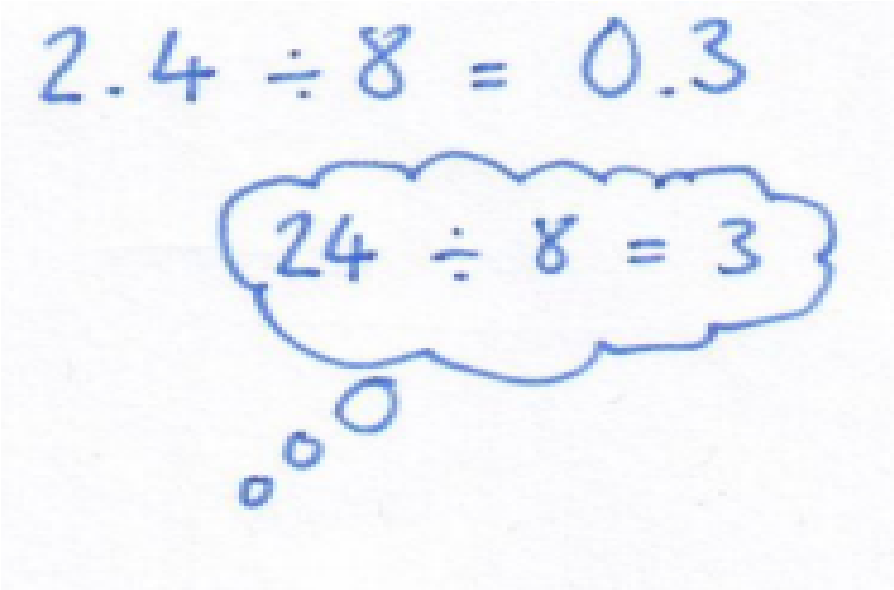 2.4 ÷ 8 = 0.3
24 ÷ 8 = 3